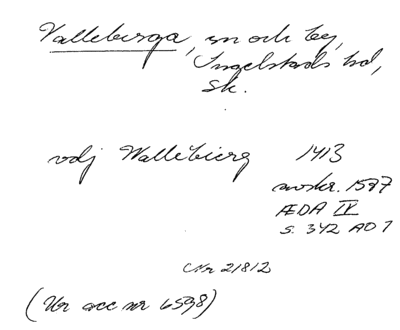 Valleberga, sn och by,
Ingelstads hd,
Sk.
vdj Wallebierg 1413
avskr. 1597
ÆDA IV
s. 342 AO 7
CNr 21812
(Ur acc nr 6598)